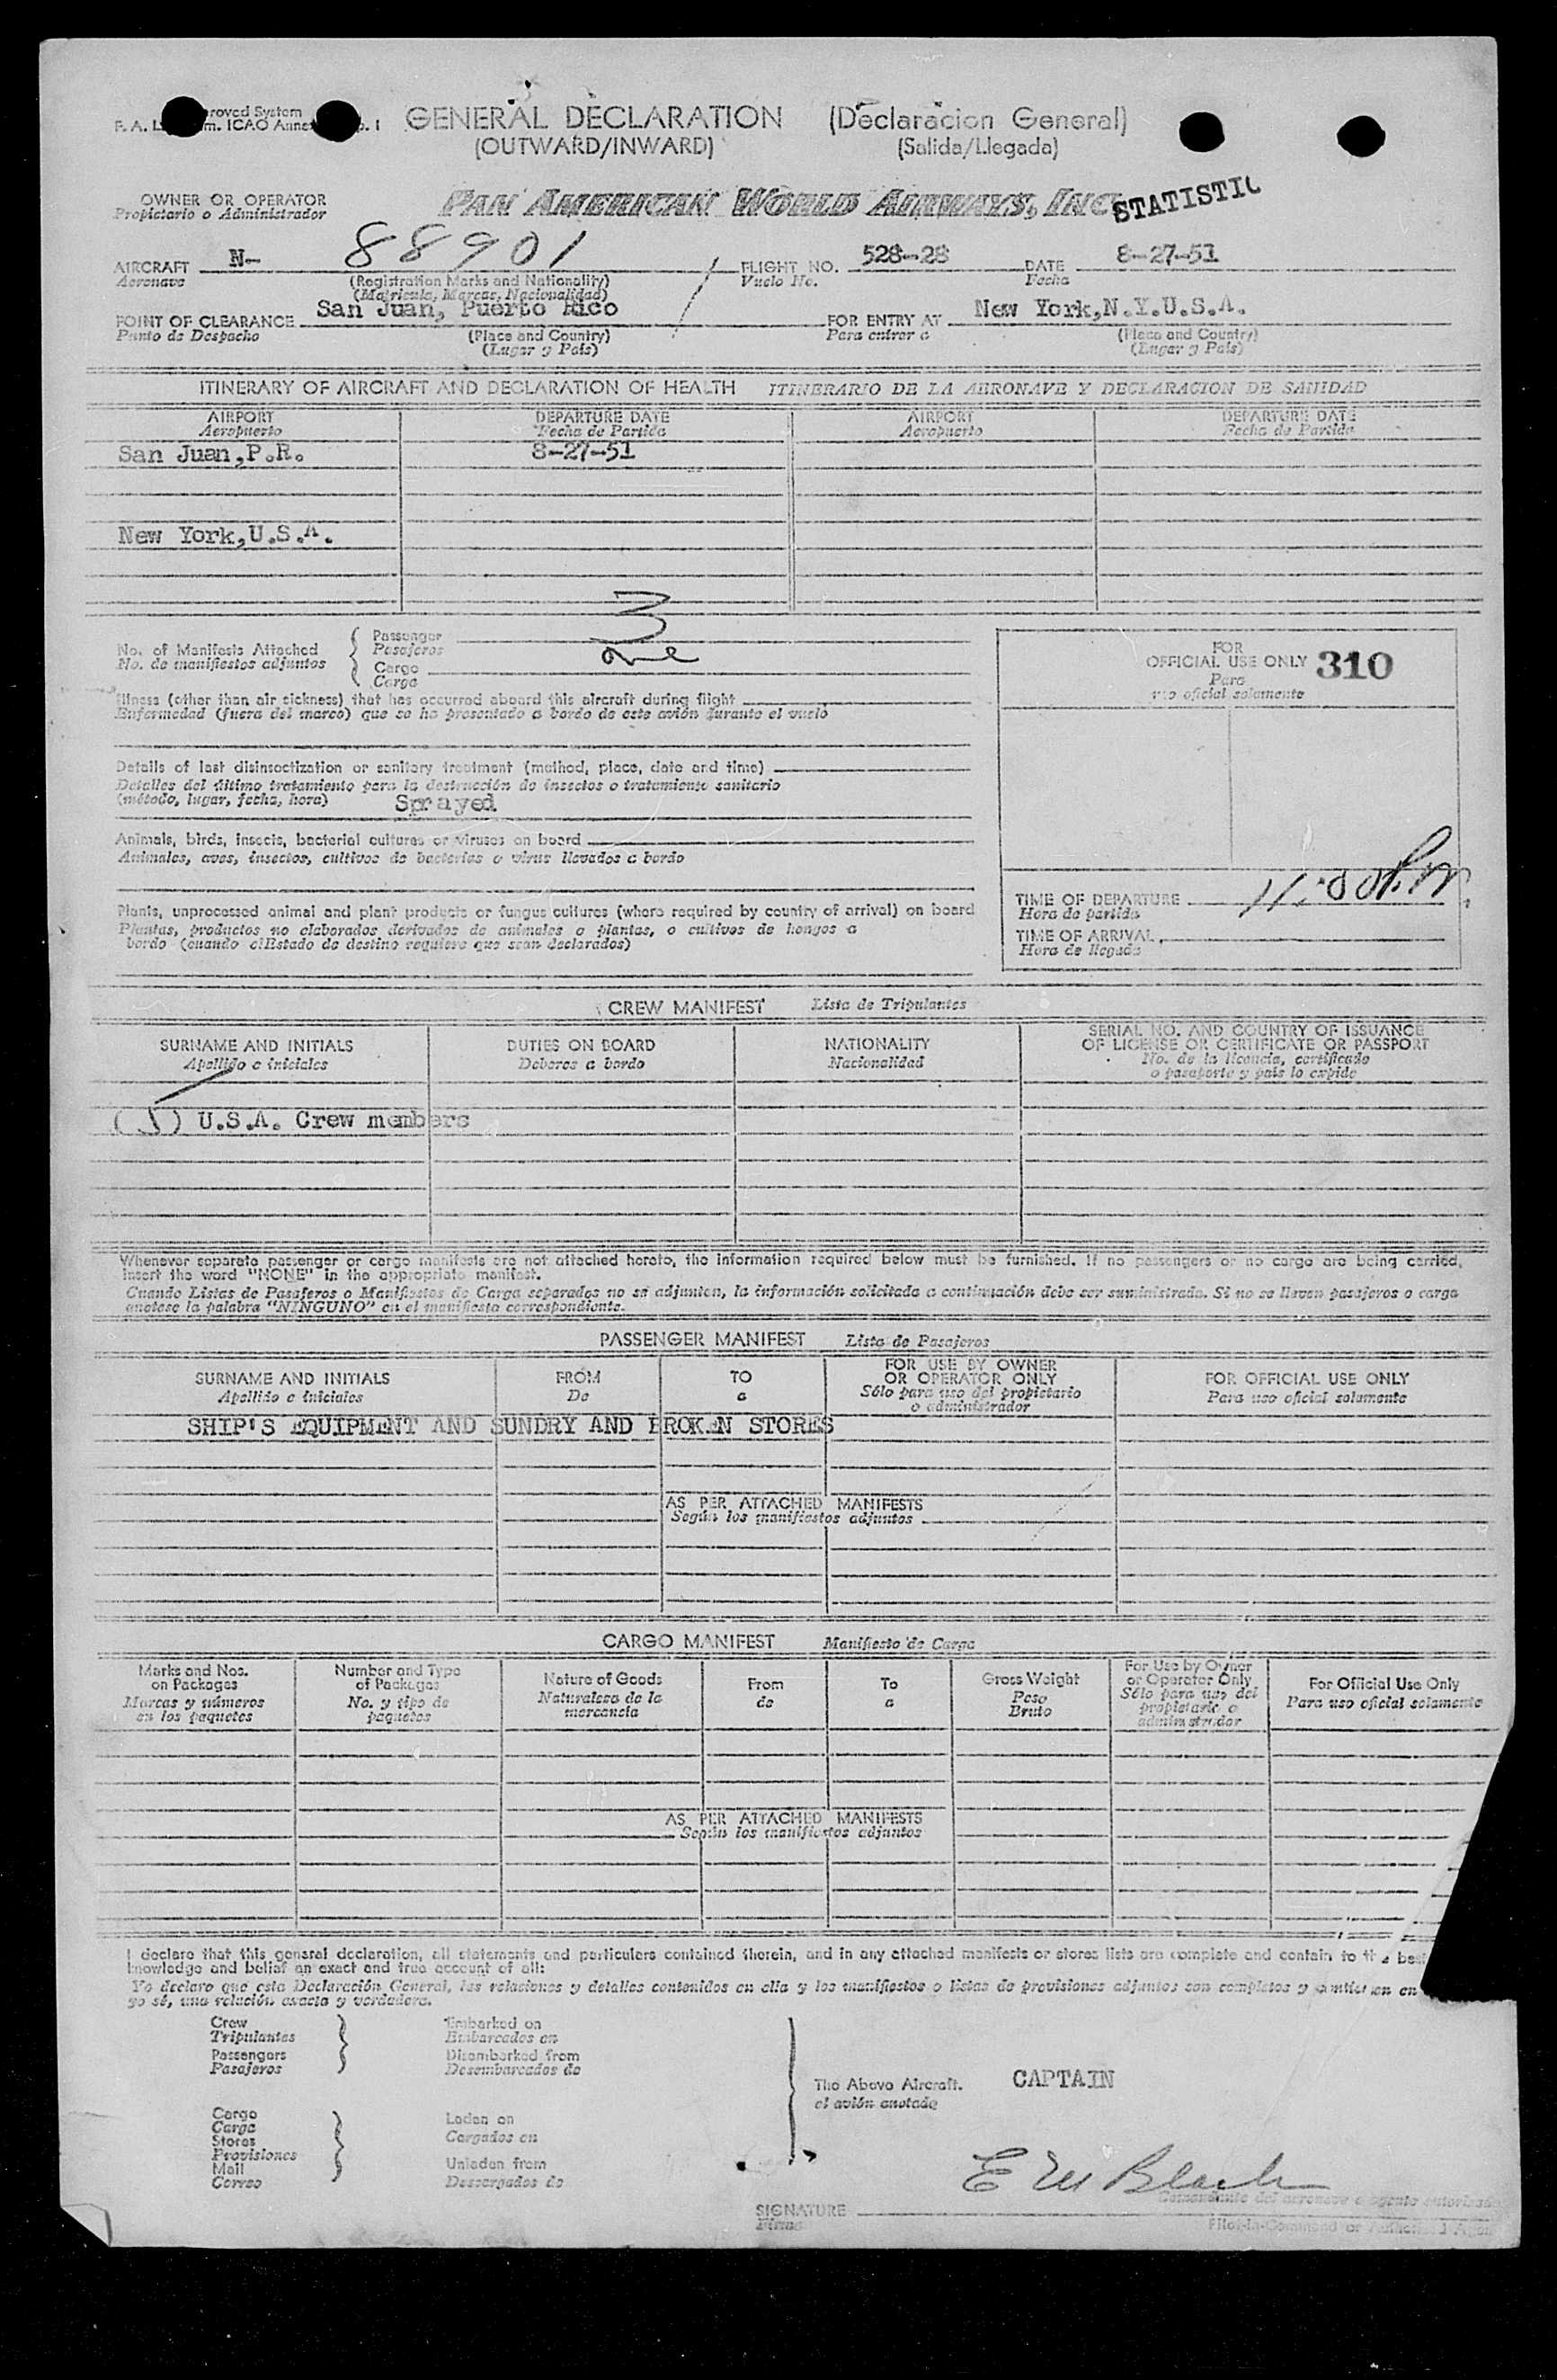 proved System
F. A. L. m. ICAO Annex o. 1
GENERAL DECLARATION (Declaracion General)
(OUTWARD/INWARD) (Salida/Llegada)
OWNER OR OPERATOR
Propietario o Administrador
PAN AMERICAN WORLD AIRWAYS, INC.
STATISTIC
AIRCRAFT N- 88901 FLIGHT NO. 528-28 DATE 8-27-51
Aeronave (Registration Marks and Nationality) Vuelo No. Fecha
(Matricula, Marcas, Nacionalidad)
POINT OF CLEARANCE San Juan, Puerto Rico FOR ENTRY AT New York,N.Y.U.S.A.
Punto de Despacho (Place and Country) Para entrar a (Place and Country)
(Lugar y País) (Lugar y País)
ITINERARY OF AIRCRAFT AND DECLARATION OF HEALTH ITINERARIO DE LA AERONAVE Y DECLARACION DE SANIDAD
AIRPORT DEPARTURE DATE AIRPORT DEPARTURE DATE
Aeropuerto Fecha de Partida Aeropuerto Fecha de Partida
San Juan,P.R. 8-27-51
New York,U.S.A.
No. of Manifests Attached
No. de manifiestos adjuntos
Passenger 3
Pasajeros
Cargo one
Carga
FOR
OFFICIAL USE ONLY 310
Para
uso oficial solamente
Illness (other than air sickness) that has occurred aboard this aircraft during flight
Enfermedad (fuera del mareo) que se ha presentado a bordo de este avión durante el vuelo
Details of last disinsectization or sanitary treatment (method, place, date and time)
Detalles del último tratamiento para la destrucción de insectos o tratamiento sanitario
(método, lugar, fecha, hora) Sprayed
Animals, birds, insects, bacterial cultures or viruses on board
Animales, aves, insectos, cultivos de bacterias o virus llevados a bordo
Plants, unprocessed animal and plant products or fungus cultures (where required by country of arrival) on board
Plantas, productos no elaborados derivados de animales o plantas, o cultivos de hongos a
bordo (cuando elEstado de destino requiere que sean declarados)
TIME OF DEPARTURE 11:00 P.M.
Hora de partida
TIME OF ARRIVAL
Hora de llegada
CREW MANIFEST Lista de Tripulantes
SURNAME AND INITIALS DUTIES ON BOARD NATIONALITY SERIAL NO. AND COUNTRY OF ISSUANCE
OF LICENSE OR CERTIFICATE OR PASSPORT
Apellido e iniciales Deberes a bordo Nacionalidad No. de la licencia, certificado
o pasaporte y país lo expide
( ) U.S.A. Crew members
Whenever separate passenger or cargo manifests are not attached hereto, the information required below must be furnished. If no passengers or no cargo are being carried,
insert the word "NONE" in the appropriate manifest.
Cuando Listas de Pasajeros o Manifiestos de Carga separados no se adjunten, la información solicitada a continuación debe ser suministrada. Si no se llevan pasajeros o carga
anotese la palabra "NINGUNO" en el manifiesto correspondiente.
PASSENGER MANIFEST Lista de Pasajeros
SURNAME AND INITIALS FROM TO FOR USE BY OWNER
OR OPERATOR ONLY FOR OFFICIAL USE ONLY
Apellido e iniciales De a Sólo para uso del propietario
o administrador Para uso oficial solamente
SHIP'S EQUIPMENT AND SUNDRY AND BROKEN STORES
AS PER ATTACHED MANIFESTS
Según los manifiestos adjuntos
CARGO MANIFEST Manifiesto de Carga
Marks and Nos.
on Packages
Marcas y números
en los paquetes
Number and Type
of Packages
No. y tipo de
paquetes
Nature of Goods
Naturaleza de la
mercancia
From
de
To
a
Gross Weight
Peso
Bruto
For Use by Owner
or Operator Only
Sólo para uso del
propietario o
administrador
For Official Use Only
Para uso oficial solamente
AS PER ATTACHED MANIFESTS
Según los manifiestos adjuntos
I declare that this general declaration, all statements and particulars contained therein, and in any attached manifests or stores lists are complete and contain to the best
knowledge and belief an exact and true account of all:
Yo declaro que esta Declaración General, las relaciones y detalles contenidos en ella y los manifiestos o listas de provisiones adjuntos son completos y contienen en
yo sé, una relación exacta y verdadera.
Crew
Tripulantes
Passengers
Pasajeros
Embarked on
Embarcados en
Disembarked from
Desembarcados de
Cargo
Carga
Stores
Provisiones
Mail
Correo
Laden on
Cargados en
Unladen from
Descargados de
The Above Aircraft.
el avión anotado
CAPTAIN
E W Black
SIGNATURE
Firma
Comandante del aeronave o agente autorizado
Pilot-in-Command or Authorized Agent